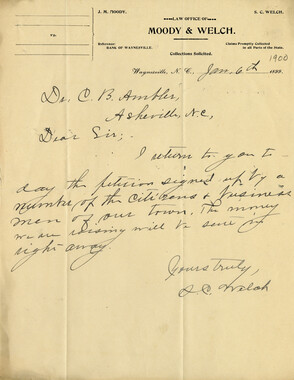 J. M. MOODY.
S. C. WELCH.
LAW OFFICE OF
MOODY & WELCH.
vs.
Reference:
BANK OF WAYNESVILLE.
Claims Promptly Collected
in all Parts of the State.
Collections Solicited.
1900
Waynesville, N. C., Jan. 6th 189
Dr. C. B. Ambler,
Asheville, N.C,
Dear Sir;
I return to you to-
day the petition signed up by a
number of the citizens & business
men of our town. The money
we are raising will be sent of
right away.
Yours truly,
S C. Welch